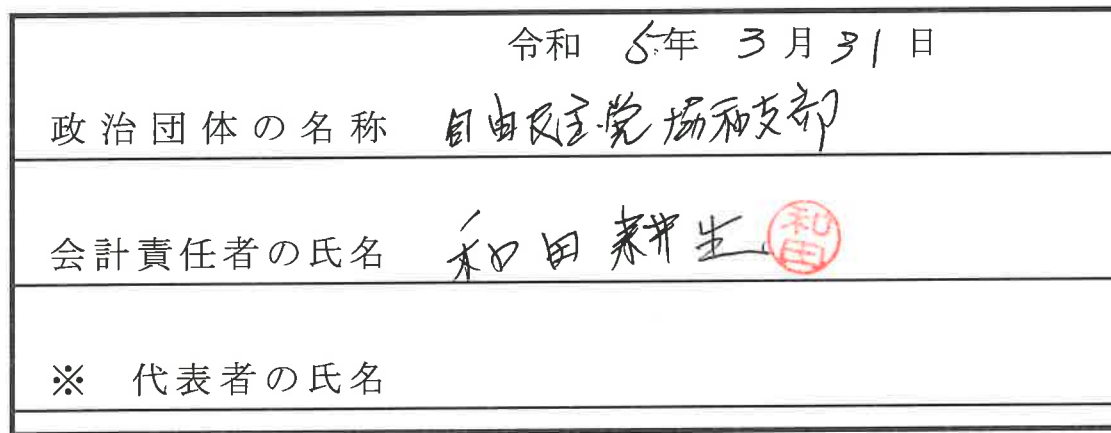 令和 5年 3月31日
政治団体の名称 自由民主党協和支部
会計責任者の氏名 和田耕生 和田
※ 代表者の氏名